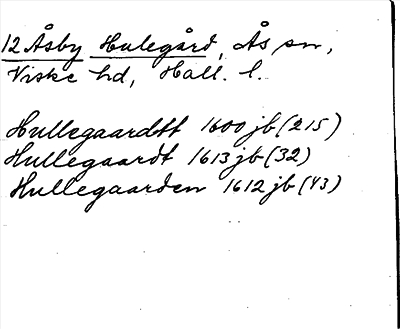 12 Åsby Hulegård, Ås sn,
Viske hd, Hall. l.
Hullegaardtt 1600 jb (215)
Hullegaardt 1613 jb (32)
Hullegaarden 1612 jb (43)